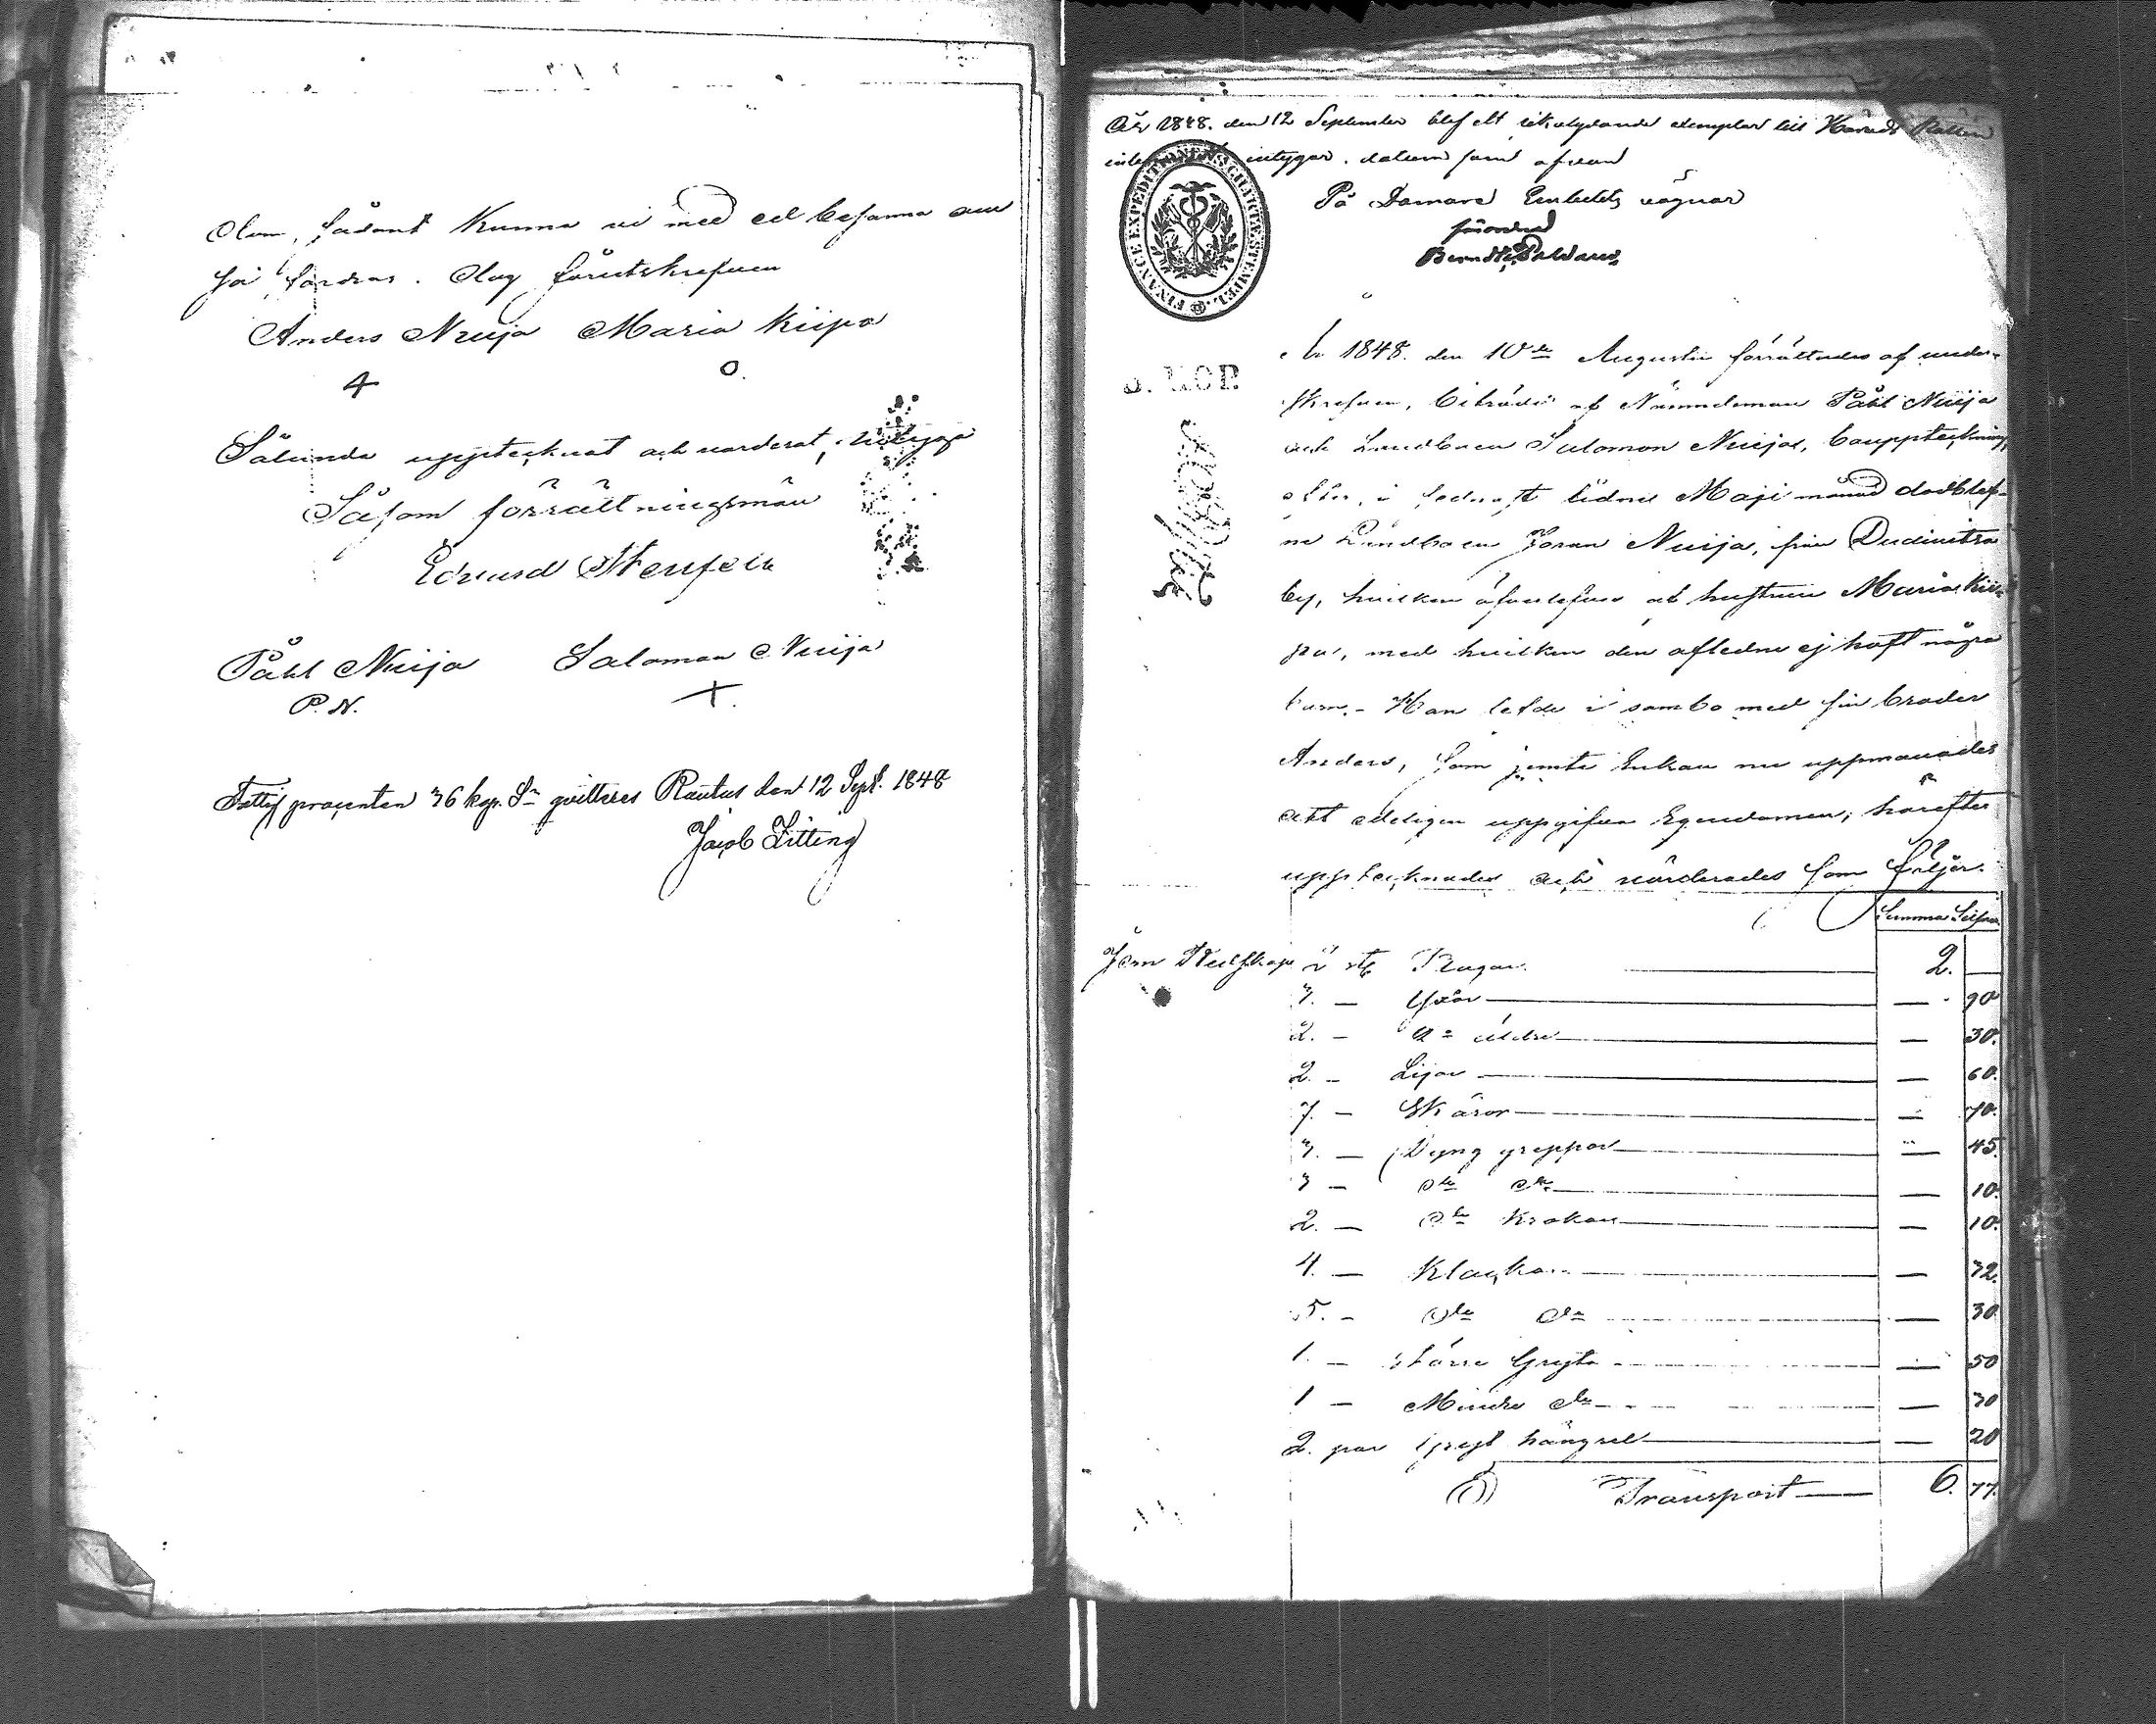 Olum, sådant kunna vi med ed besanna om
så fordras. Dag förutskrefven
Anders Nuija Maria Kiipa
4 O.
Sålunda upptecknat och värderat, intyga
Såsom förrättningsmän
Edvard
Påhl Nuija Saloman Nuija
P. N. +.
Fattig procenten 36 kop. Sr qvitteras Rautus den 12 Sept. 1848
Jacob Sitting
År 1848. den 12 September blef ett likalydande exemplar till Härads Rätten
intygar. datum som ofvan
På Domare Embetets vägnar
förordnad
Berndt
FINANCE EXPEDITIONENS CHARTÆ STEMPEL.
År 1848. den 10de Augusti förrättades af under-
skrefven, biträdd af Nämndeman Påhl Nuija
och Landboen Salomon Nuija, bouppteckning
efter, i sednast lidne Maji månad dödblef-
ne Landboen Jöran Nuija, från
by, hvilken öfverlefves af hustrun Maria Kii-
pa, med hvilken den aflidne ej haft några
barn. - Han lefde i sambo med sin broder
Anders, som jemte Enkan nu uppmanades
att edeligen uppgifva Egendomen; hvarefter
upptecknades och värderades som följer.
Summa Silfver
Jern Redskap 2 st Plogar 2. —
3. — Yxor — 90
2. — Do äldre — 30.
2. — Lijor — 60.
7. — Skäror — 70.
3. — Dyng greppar — 45.
3 — Do Do — 10.
2. — Do Krokar — 10.
4. — Klockor — 32.
5. — Do Do — 30
1. — större Gryta — 50
1 — Mindre do — 30
2. par Gryt hängsel — 20
Transport — 6. 77.